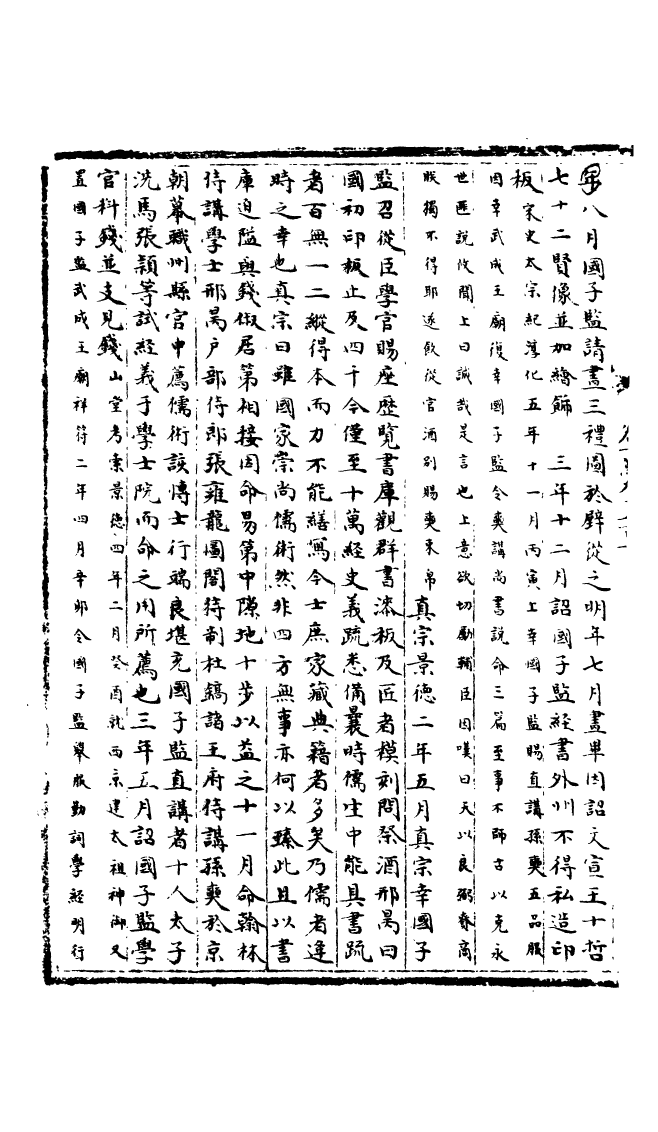 年八月國子監請畫三禮圖於壁從之明年七月畫畢因詔文宣王十哲
七十二賢像並加繪飾　三年十二月詔國子監經書外州不得私造印
板宋史太宗紀淳化五年十一月丙寅上幸國子監賜直講孫奭五品服
因幸武成王廟復幸國子監令奭講尚書說命三篇至事不師古以克永
世匪說攸聞上曰誠哉是言也上意欲切勵輔臣因嘆曰天以良弼賚商
朕獨不得耶遂飲從官酒別賜奭束帛　真宗景德二年五月真宗幸國子
監召從臣學官賜座歷覽書庫觀群書漆板及匠者模刻問祭酒邢昺曰
國初印板止及四千今僅至十萬經史義疏悉備曩時儒生中能具書疏
者百無一二縱得本而力不能繕寫今士庶家藏典籍者多矣乃儒者逢
時之幸也真宗曰雖國家崇尚儒術然非四方無事亦何以臻此且以書
庫迫隘與錢俶居第相接因命易第中隙地十步以益之十一月命翰林
侍講學士邢昺戶部侍郎張雍龍圖閣待制杜鎬諸王府侍講孫奭於京
朝幕職州縣官中薦儒術該博士行端良堪充國子監直講者十人太子
洗馬張頴等試經義于學士院而命之用所薦也三年五月詔國子監學
官料錢並支見錢山堂考索景德四年二月癸酉就西京建太祖神御又
置國子監武成王廟祥符二年四月辛卯令國子監舉服勤詞學經明行